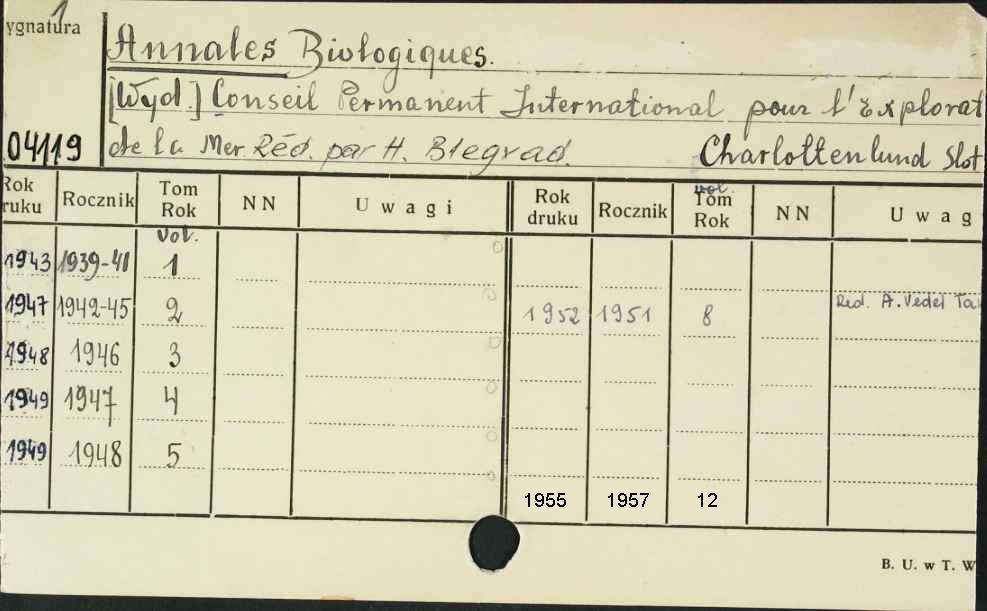 ygnatura
1
Annales Biologiques.
[Wyd.] Conseil Permanent International pour l'Explorat
04119 de la Mer. Réd. par H. Blegvad. Charlottenlund Slot
Rok ruku Rocznik Tom Rok NN Uwagi Rok druku Rocznik vol. Tom Rok NN Uwag
vol.
1943 1939-41 1
1947 1942-45 2 1952 1951 8 Red. A. Vedel Ta
1948 1946 3
1949 1947 4
1949 1948 5
1955 1957 12
B. U. w T. W